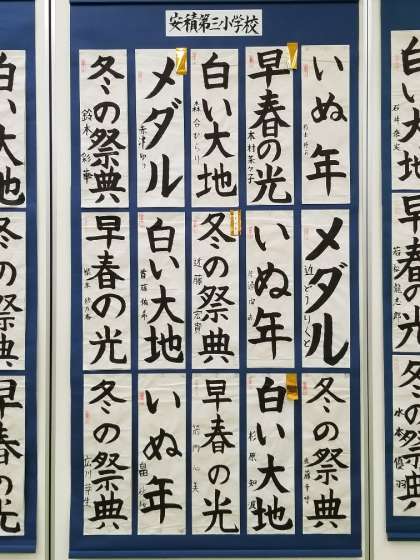 安積第三小学校
白い大地
早春の光
冬の祭典
水本優羽
いぬ年
早春の光
木村菜々子
白い大地
森合ひらり
メダル
冬の祭典
鈴木彩華
メダル
近どうりくと
いぬ年
冬の祭典
近藤宏貴
白い大地
早春の光
冬の祭典
白い大地
杉原知
早春の光
いぬ年
冬の祭典
広川芽生
白い大地
冬の祭典
早春の光